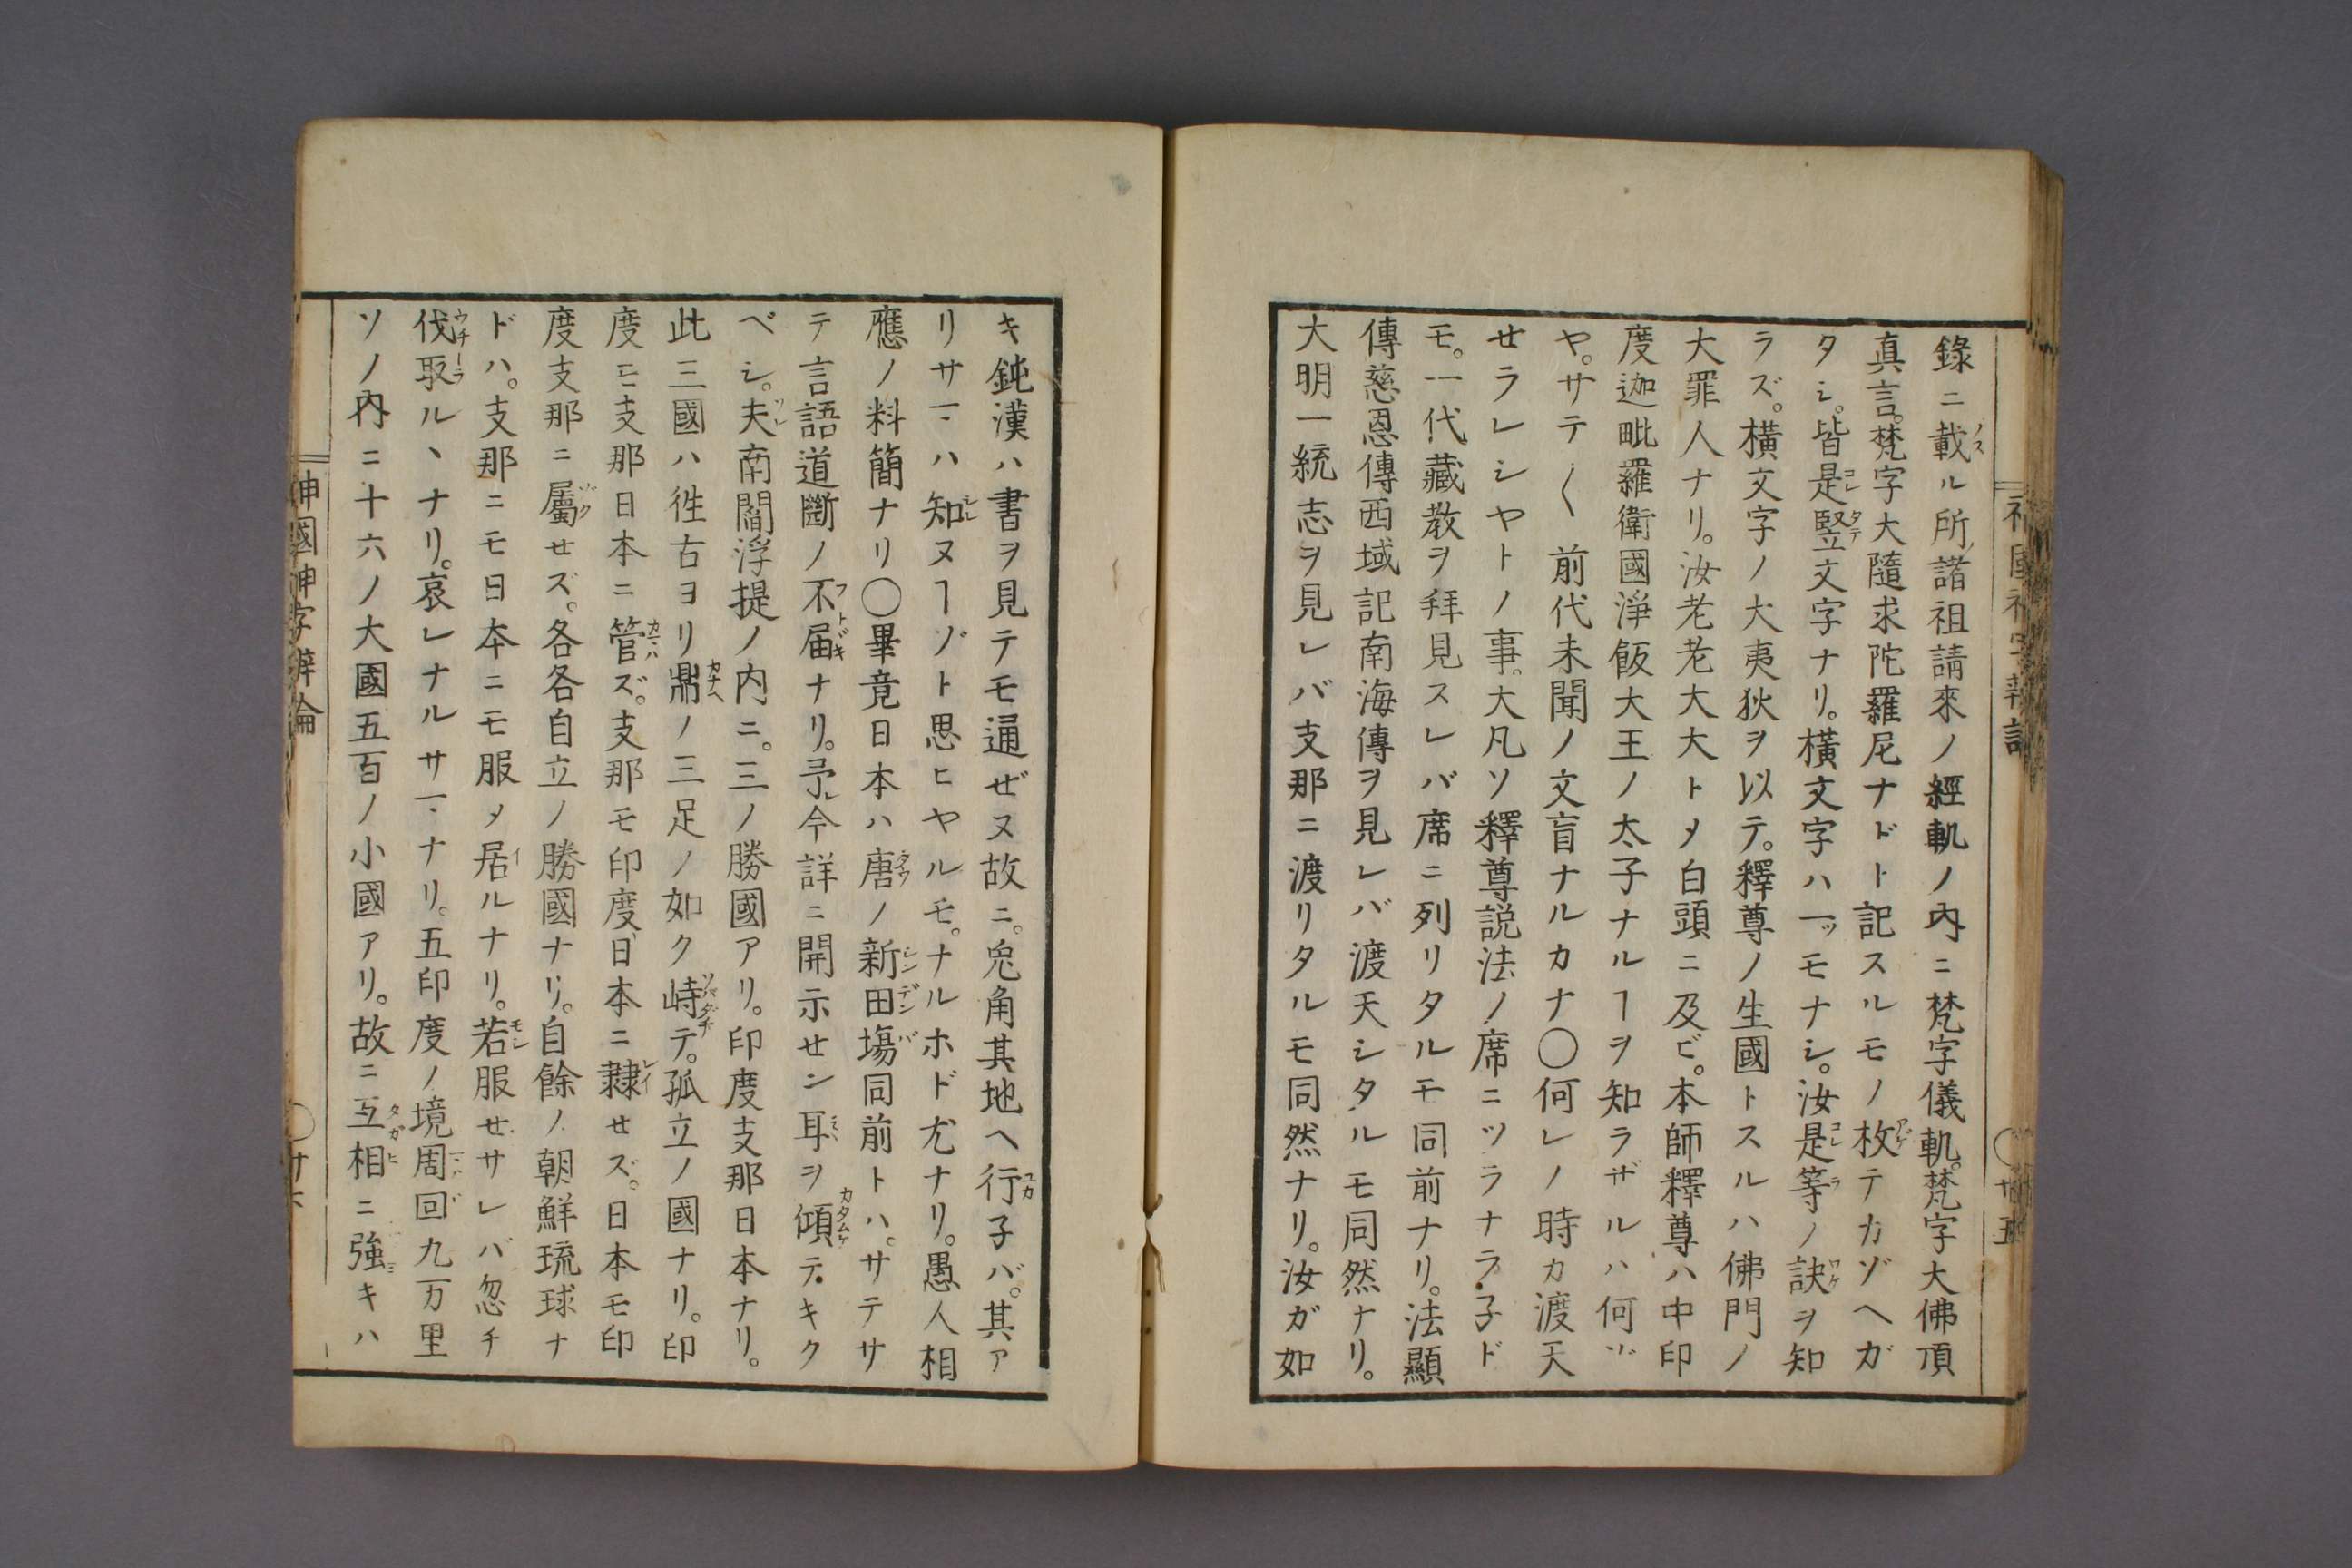 錄ニ載ル所ノ諸祖請來ノ經軌ノ內ニ梵字儀軌。梵字大佛頂
真言。梵字大隨求陀羅尼ナドト記スルモノ枚テカゾヘガ
タシ。皆是竪文字ナリ。橫文字ハ一ッモナシ。汝是等ノ訣ヲ知
ラズ。橫文字ノ大夷狄ヲ以テ。釋尊ノ生國トスルハ佛門ノ
大罪人ナリ。汝老老大大トメ白頭ニ及ビ。本師釋尊ハ中印
度迦毗羅衛國淨飯大王ノ太子ナルヿヲ知ラザルハ何ゾ
ヤ。サテ〱前代未聞ノ文盲ナルカナ〇何レノ時カ渡天
せラレシヤトノ事。大凡ソ釋尊説法ノ席ニツラナラ子ド
モ。一代藏教ヲ拜見スレバ席ニ列リタルモ同前ナリ。法顯
傳慈恩傳西域記南海傳ヲ見レバ渡天シタルモ同然ナリ。
大明一統志ヲ見レバ支那ニ渡リタルモ同然ナリ。汝ガ如
キ鈍漢ハ書ヲ見テモ通ぜヌ故ニ。兔角其地ヘ行子バ。其ア
リサマハ知ヌヿゾト思ヒヤルモ。ナルホド尤ナリ。愚人相
應ノ料簡ナリ〇畢竟日本ハ唐ノ新田塲同前トハ。サテサ
テ言語道斷ノ不届ナリ。予今詳ニ開示せン耳ヲ傾テキク
ベシ。夫南閻浮提ノ内ニ。三ノ勝國アリ。印度支那日本ナリ。
此三國ハ徃古ヨリ鼎ノ三足ノ如ク峙テ。孤立ノ國ナリ。印
度モ支那日本ニ管ズ。支那モ印度日本ニ隸せズ。日本モ印
度支那ニ屬せズ。各各自立ノ勝國ナリ。自餘ノ朝鮮琉球ナ
ドハ。支那ニモ日本ニモ服メ居ルナリ。若服せサレバ忽チ
伐取ルヽナリ。哀レナルサマナリ。五印度ノ境周回九万里
ソノ內ニ十六ノ大國五百ノ小國アリ。故ニ互相ニ強キハ
神國神字辨論
〇廿五